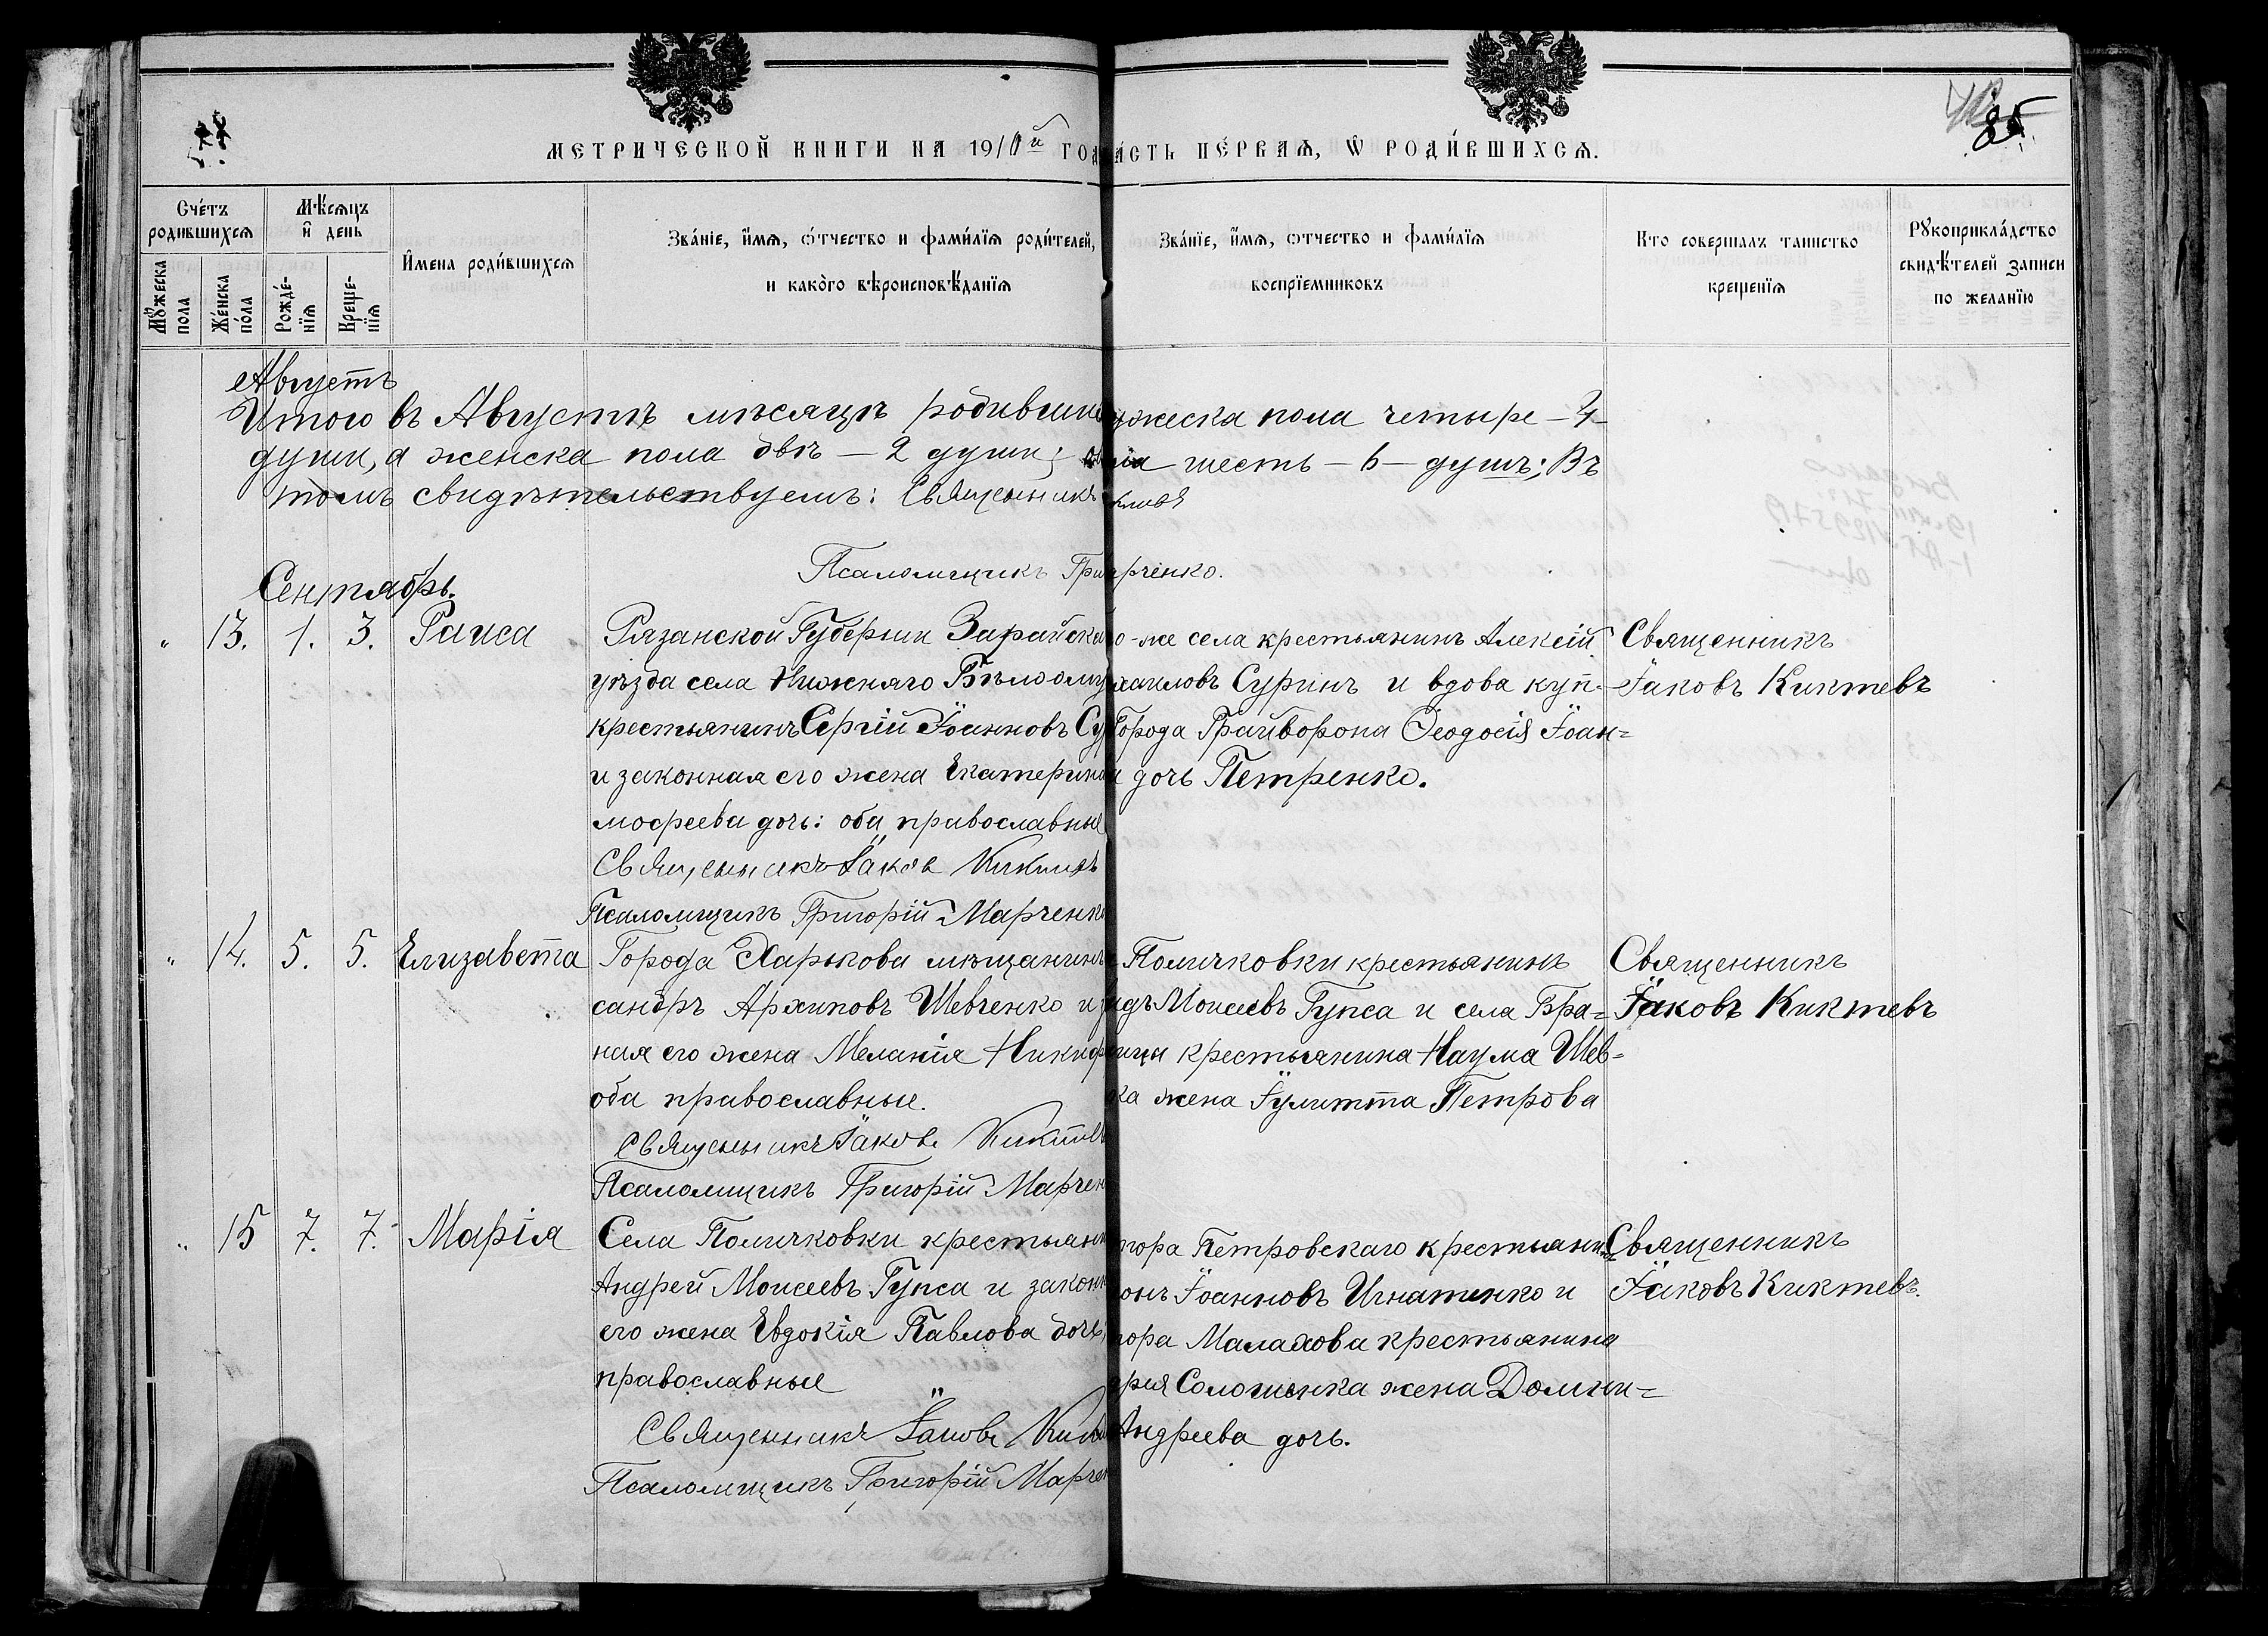 МЕТРИЧЕСКОЙ КНИГИ НА 1910й ГОД
АСТЬ ПЕ́РВАѦ, Ѡ РОДИ́ВШИХСѦ.
85
Сче́тъ родившихсѧ
Мѣ́сѧцъ и҆ день
Мꙋ́жеска пола
Же́нска по́ла
Рожде́-нїѧ
Креще-нїѧ
И҆мена роди́вшихсѧ
Зва́нїе, и҆́мѧ, ѻ҆́тчество и фами́лїѧ роди́телей,
и како́го вѣроисповѣ́данїѧ
Зва́нїе, и҆́мѧ, ѻтчество и фами́лїѧ
воспрїемниковъ
Кто совершалъ таинство
крещенїѧ
Рꙋкоприкла́дство
свидѣ́телей записи
по желанїю
Августъ
Итого въ Августѣ мѣсяцѣ родивши
ужеска пола четыре – 4 –
души, а женска пола двѣ – 2 души;
шесть – 6 – душъ; Въ
томъ свидѣтельствуемъ: Священникъ
Псаломщикъ Гри
рченко.
Сентябрь.
" 13. 1. 3. Раиса
Рязанской Губерніи Зарайска
уѣзда села Нижняго Бѣлоому
крестьянинъ Сергій Іоанновъ Су
и законная его жена Екатерина
мофеева дочь: оба православные
Священникъ Іаковъ Киктевъ
Псаломщикъ Григорій Марченко
о-же села крестьянинъ Алексій
хаиловъ Суринъ и вдова куп.
Города Грайворона Ѳеодосія Іоан=
дочь Петренко.
Священникъ
Іаковъ Киктевъ
" 14. 5. 5. Елизавета
Города Харькова мѣщанинъ
сандръ Архиповъ Шевченко и з
ная его жена Меланія Никиф
оба православные.
Священникъ Іаковъ Киктев
Псаломщикъ Григорій Марчен
Поличковки крестьянинъ
идъ Моисеевъ Гупса и села Бра=
ицы крестьянина Наума Шев=
ка жена Іулитта Петрова
Священникъ
Іаковъ Киктевъ
" 15 7. 7. Марія
Села Поличковки крестьяни
Андрей Моисеевъ Гупса и законн
его жена Евдокія Павлова дочь;
православные
Священникъ Іаковъ Кик
Псаломщикъ Григорій Марчен
тора Петровскаго крестьяни=
онъ Іоанновъ Игнатенко и
тора Малахова крестьянина
дрея Солошенка жена Домни=
Андреева дочь.
Священникъ
Іаковъ Киктевъ.